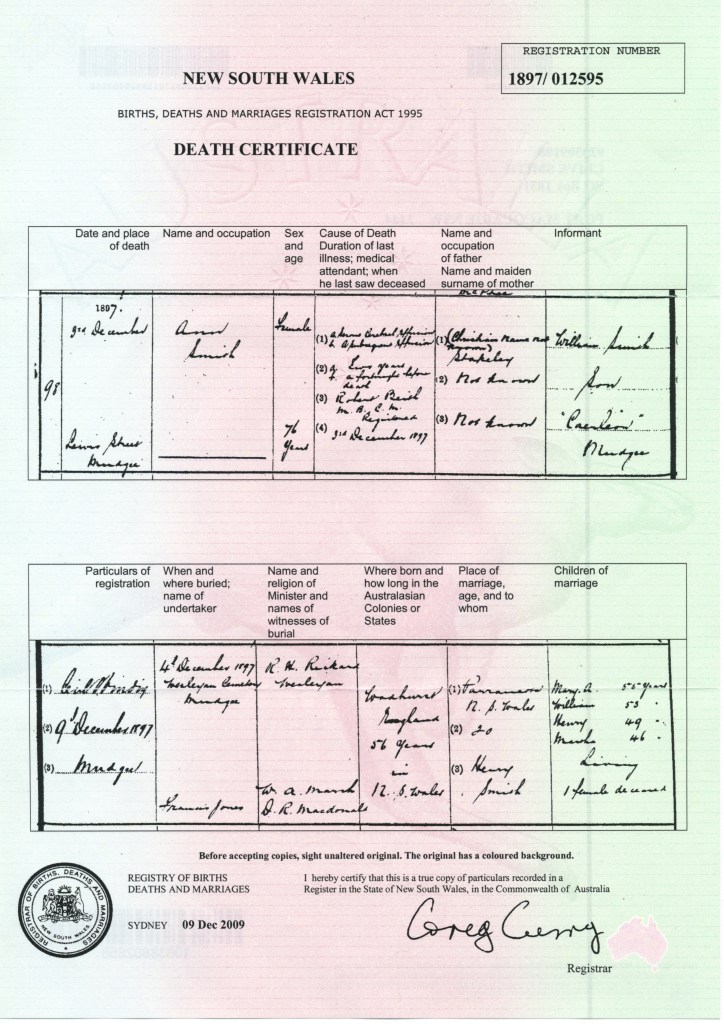 REGISTRATION NUMBER
1897/ 012595
NEW SOUTH WALES
BIRTHS, DEATHS AND MARRIAGES REGISTRATION ACT 1995
DEATH CERTIFICATE
Date and place of death
Name and occupation
Sex and age
Cause of Death
Duration of last illness; medical attendant; when he last saw deceased
Name and occupation of father
Name and maiden surname of mother
Informant
98
1897.
3rd December
Lewis Street
Mudgee
Ann
Smith
Female
76
Years
(1)
(2)
Two years
a fortnight before
death
(3) Robert
M.B. C.M.
Registered
(4) 3rd December 1897
(1) (Christian name not
known)
Stakeley
(2) Not known
(3) Not known
William Smith
Son
"Caerleon"
Mudgee
Particulars of registration
When and where buried; name of undertaker
Name and religion of Minister and names of witnesses of burial
Where born and how long in the Australasian Colonies or States
Place of marriage, age, and to whom
Children of marriage
(1)
(2) 9th December 1897
(3) Mudgee
4th December 1897
Wesleyan Cemetery
Mudgee
Francis Jones
R. H. Rickard
Wesleyan
W. A. Marsh
D. R. Macdonald
Woodhurst
England
56 years
in
N. S. Wales
(1) Parramatta
N. S. Wales
(2) 20
(3) Henry
Smith
Mary A. 55 years
William 53 "
Henry 49 "
Martha 46 "
Living
1 female deceased
Before accepting copies, sight unaltered original. The original has a coloured background.
REGISTRAR OF BIRTHS, DEATHS AND MARRIAGES
NEW SOUTH WALES
REGISTRY OF BIRTHS
DEATHS AND MARRIAGES
SYDNEY 09 Dec 2009
I hereby certify that this is a true copy of particulars recorded in a
Register in the State of New South Wales, in the Commonwealth of Australia
Greg Curry
Registrar